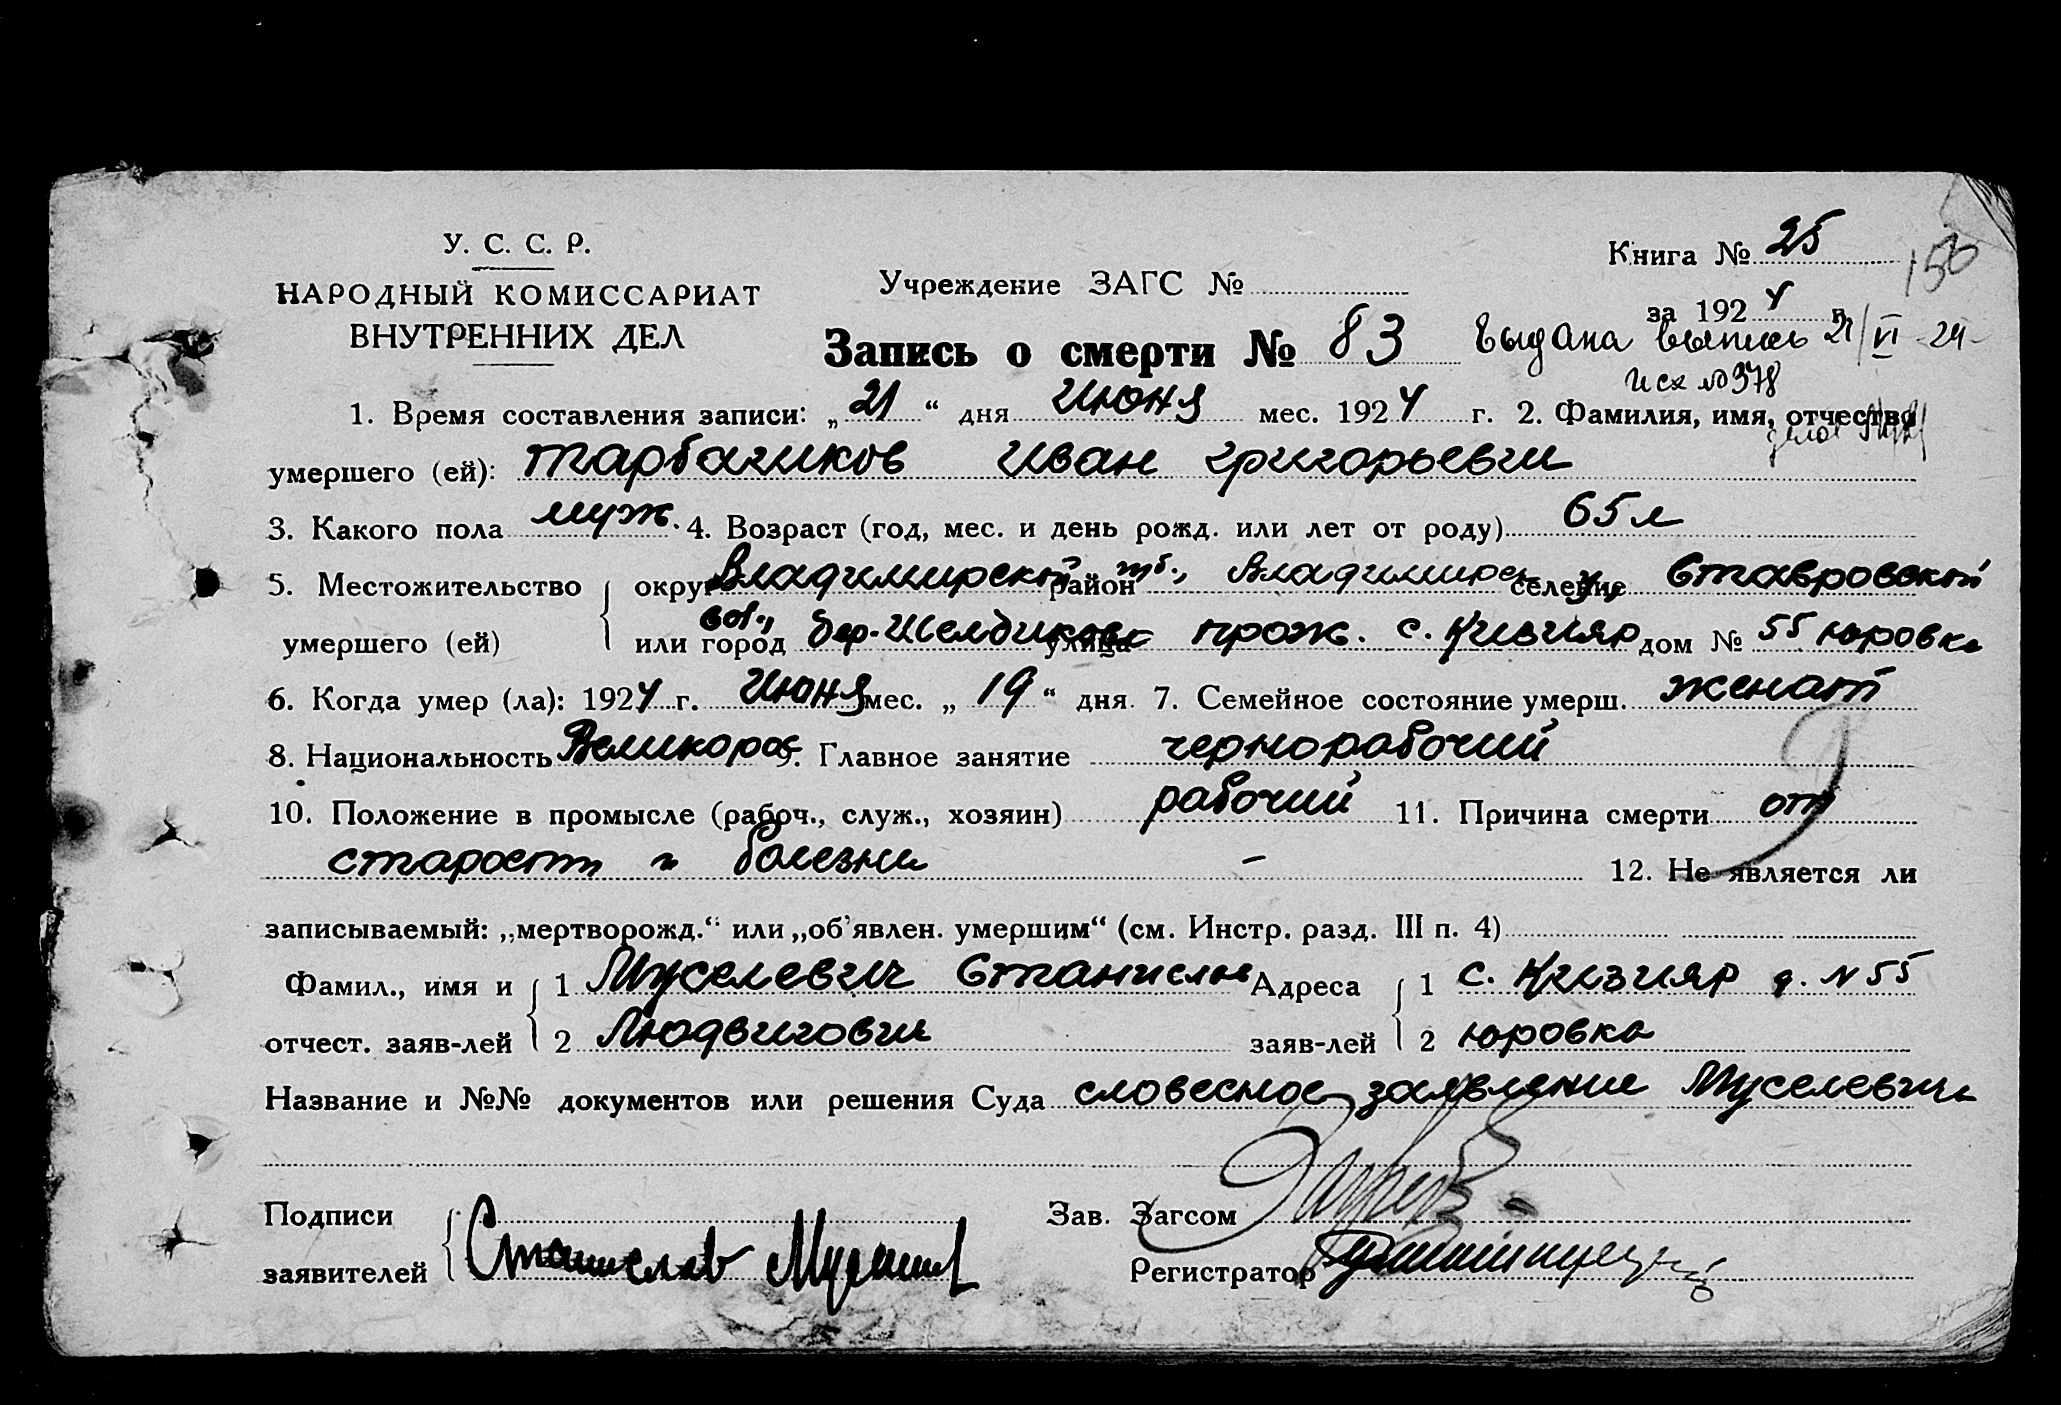 У. С. С. Р.
НАРОДНЫЙ КОМИССАРИАТ
ВНУТРЕННИХ ДЕЛ
Учреждение ЗАГС №
Книга № 25
150
за 1924 г.
Запись о смерти № 83
Выдана выпись 21/VI-24-
Исх №378
1. Время составления записи: „21“ дня Июня мес. 1924 г. 2. Фамилия, имя, отчество
умершего (ей): Тарбагиков Иван Григорьевич
3. Какого пола муж. 4. Возраст (год, мес. и день рожд. или лет от роду) 65 л
5. Местожительство умершего (ей) { округ Владимирской район гб., Владимирск селение у, Ставровской
или город вол., дер. Шелдиково улица прож. с. Кизияр дом № 55 Юровка
6. Когда умер (ла): 1924 г. Июня мес. „19“ дня. 7. Семейное состояние умерш. женат
8. Национальность Великорос 9. Главное занятие чернорабочий
10. Положение в промысле (рабоч., служ., хозяин) рабочий 11. Причина смерти от
старости и болезни - 12. Не является ли
записываемый: „мертворожд.“ или „об'явлен. умершим“ (см. Инстр. разд. III п. 4)
Фамил., имя и { 1 Муселевич Станислав Адреса { 1 с. Кизияр д. №55
отчест. заяв-лей { 2 Людвигович заяв-лей { 2 Юровка
Название и №№ документов или решения Суда словесное заявление Муселевича
Подписи Зав. Загсом
заявителей { Станислав Регистратор